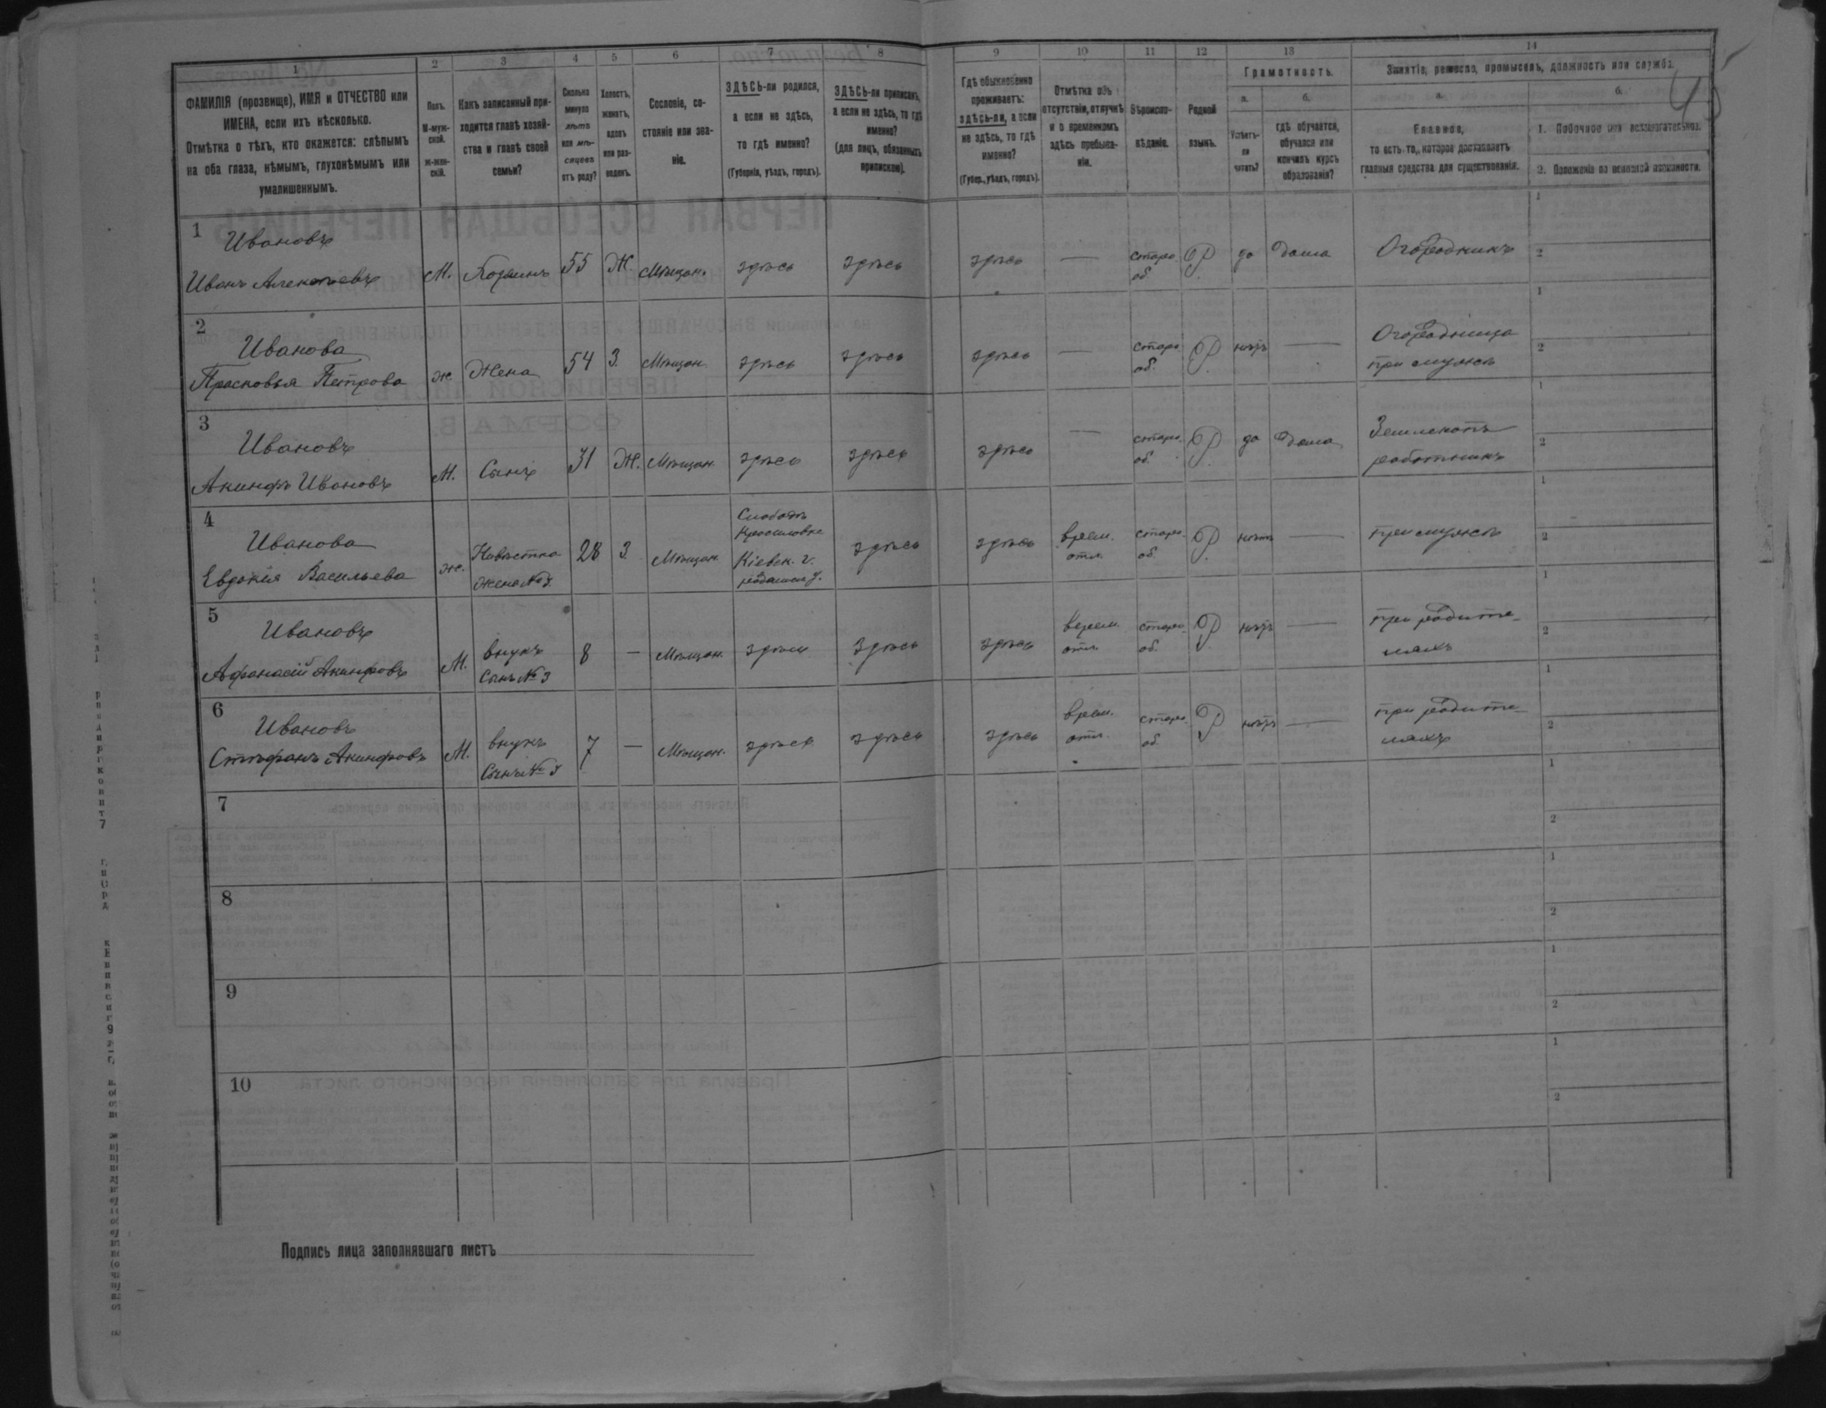 1 2 3 4 5 6 7 8 9 10 11 12 13 14
ФАМИЛІЯ (прозвище), ИМЯ и ОТЧЕСТВО или
ИМЕНА, если ихъ нѣсколько.
Отмѣтка о тѣхъ, кто окажется: слѣпымъ
на оба глаза, нѣмымъ, глухонѣмымъ или
умалишеннымъ.
Полъ.
М-муж-
ской.
ж-жен-
скій.
Какъ записанный при-
ходится главѣ хозяй-
ства и главѣ своей
семьи?
Сколько
минуло
лѣтъ
или мѣ-
сяцевъ
отъ роду?
Холостъ,
женатъ,
вдовъ
или раз-
веденъ.
Сословіе, со-
стояніе или зва-
ніе.
ЗДѢСЬ-ли родился,
а если не здѣсь,
то гдѣ именно?
(Губернія, уѣздъ, городъ).
ЗДѢСЬ-ли приписанъ,
а если не здѣсь, то гдѣ
именно?
(для лицъ, обязанныхъ
припискою).
Гдѣ обыкновенно
проживаетъ:
здѣсь-ли, а если
не здѣсь, то гдѣ
именно?
(Губер., уѣздъ, городъ).
Отмѣтка объ
отсутствіи, отлучкѣ
и о временномъ
здѣсь пребыва-
ніи.
Вѣроиспо-
вѣданіе.
Родной
языкъ.
Грамотность.
а.
Умѣетъ-
ли
читать?
б.
гдѣ обучается,
обучался или
кончилъ курсъ
образованія?
Занятіе, ремесло, промыселъ, должность или служба.
а.
Главное,
то есть то, которое доставляетъ
главныя средства для существованія.
б.
1. Побочное или вспомогательное.
2. Положеніе по воинской повинности.
1 Ивановъ
Иванъ Алексѣевъ М. Хозяинъ 55 Ж. Мѣщан. здѣсь здѣсь здѣсь — старо об. Р. да Дома Огородникъ
1
2
2 Иванова
Прасковья Петрова ж. Жена 54 З. Мѣщан. здѣсь здѣсь здѣсь — старо об. Р. нѣтъ — Огородница
при мужѣ
1
2
3 Ивановъ
Акинфъ Ивановъ М. Сынъ 31 Ж. Мѣщан. здѣсь здѣсь здѣсь — старо. об. Р. да Дома Землекопъ
работникъ
1
2
4 Иванова
Евдокія Васильева ж. Невѣстка
жена №3 28 З Мѣщан.
Кіевск. г. здѣсь здѣсь врем.
отл. старо. об. Р. нѣтъ — при мужѣ
1
2
5 Ивановъ
Афанасій Акинфовъ М. внукъ
Сынъ №3 8 — Мѣщан. здѣсь здѣсь здѣсь врем.
отл. старо. об. Р. нѣтъ — при родите-
ляхъ
1
2
6 Ивановъ
Стефанъ Акинфовъ М. внукъ
Сынъ №3 7 — Мѣщан. здѣсь здѣсь здѣсь врем.
отл. старо. об. Р. нѣтъ — при родите-
ляхъ
1
2
7
1
2
8
1
2
9
1
2
10
1
2
Подпись лица заполнявшаго листъ